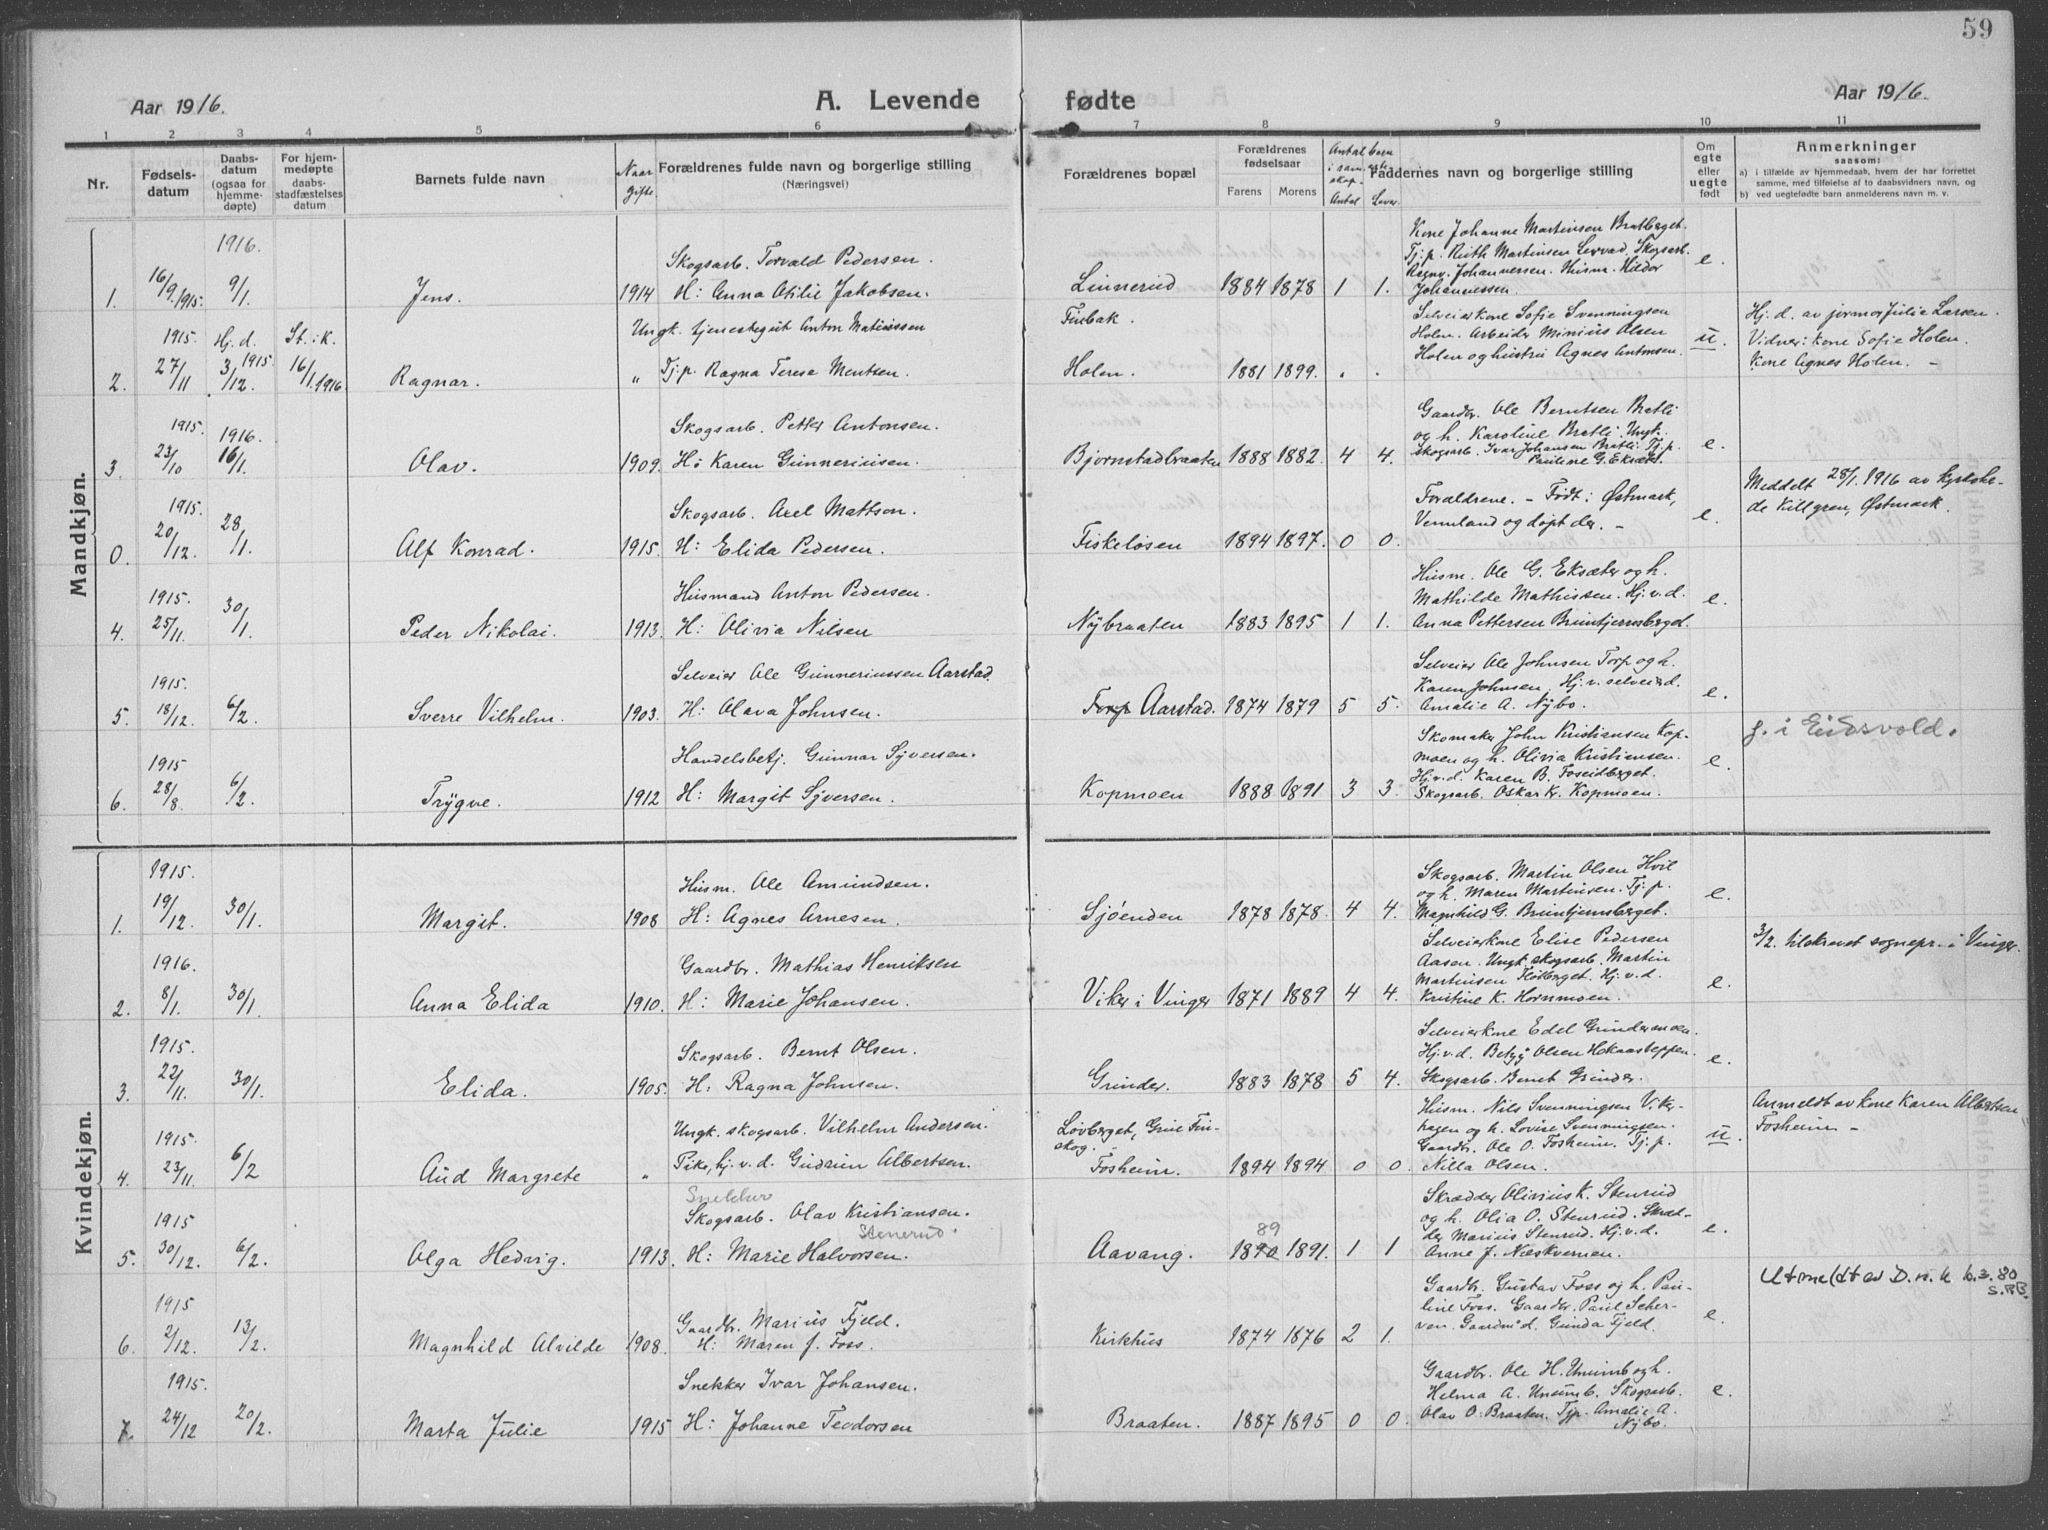 59
Aar 1916.
A. Levende fødte
Aar 1916.
1 2 3 4 5 6 7 8 9 10 11
Nr.
Fødsels-
datum
Daabs-
datum
(ogsaa for
hjemme-
døpte)
For hjem-
medøpte
daabs-
stadfæstelses
datum
Barnets fulde navn
Naar
gifte.
Forældrenes fulde navn og borgerlige stilling
(Næringsvei)
Forældrenes bopæl
Forældrenes
fødselsaar
Farens Morens
Antal barn
Antal Lever
Faddernes navn og borgerlige stilling
Om
egte
eller
uegte
født
Anmerkninger
saasom:
a) i tilfælde av hjemmedaab, hvem der har forrettet
samme, med tilføielse af to daabsvidners navn, og
b) ved uegtefødte barn anmelderens navn m. v.
Mandkjøn.
1916.
Skogsarb. Torvald Pedersen.
Kone Johanne Martinsen Bratberget.
Tj.p. Ruth Martinsen Lervad. Skogsarb.
Ragnv. Johannessen. Husm. Hildor
Johannessen.
1. 16/9.1915. 9/1. Jens. 1914 H: Anna Otilie Jakobsen. Linnerud 1884 1878 1 1. e.
1915. Hj.d. St. i k.
Ungk. tjenestegut Anton Matiussen
Finbak.
Selveierkone Sofie Svenningsen
Holen. Arbeider Minius Olsen
Holen og hustru Agnes Antonsen.
Hj. d. av jormor Julie Larsen.
Vidner: Kone Sofie Holen.
Kone Agnes Holen. –
2. 27/11 3/12. 1915. 16/1 1916. Ragnar. „ Tj.p. Ragna Terese Mentsen. Holen. 1881 1899. „ „ u.
1915. 1916.
Skogsarb. Petter Antonsen.
Gaardbr. Ole Berntsen Bratli
og h. Karoline Bratli. Ungk.
skogsarb. Ivar Johansen Bratli. Tj.p.
Pauline G. Eksæter.
3. 23/10 16/1. Olav. 1909. H: Karen Gunneriusen. Bjornstadbraaten 1888 1882. 4 4. e.
1915.
Skogsarb. Axel Mattson.
Forældrene. – Født i Østmark,
Vermland og døpt der. –
Meddelt 28/1.1916 av kyrkohe-
de Killgren, Østmark.
0. 20/12. 28/1. Alf Konrad. 1915. H: Elida Pedersen. Fiskeløsen 1894 1897. 0 0. e.
1915.
Husmand Anton Pedersen.
Husm. Ole G. Eksæter og h.
Mathilde Mathissen. Hj.v.d.
Anna Pettersen Bruntjernsberget.
4. 25/11. 30/1. Peder Nikolai. 1913. H: Olivia Nilsen Nybraaten 1883 1895 1 1. e.
1915.
Selveier Ole Gunneriussen Aarstad.
Selveier Ole Johnsen Torp og h.
Karen Johnsen. Hj.v. selveierd.
Amalie A. Nybo.
5. 18/12. 6/2. Sverre Vilhelm. 1903. H: Olava Johnsen. Torp Aarstad. 1874 1879 5 5. e.
f. i Eidsvold.
1915
Handelsbetj. Gunnar Syversen.
Skomaker John Kristiansen Kop-
moen og h. Olivia Kristiansen.
Hj.v.d. Karen B. Foseidberget.
Skogsarb. Oskar Kr. Kopmoen.
6. 28/8. 6/2. Trygve. 1912 H: Margit Syversen. Kopmoen 1888 1891 3 3. e.
Kvindekjøn.
1915.
Husm. Ole Amundsen.
Skogsarb. Martin Olsen Hvil
og h. Maren Martinsen. Tj.p.
Magnhild G. Bruntjernsberget.
1. 19/12. 30/1. Margit. 1908 H: Agnes Arnesen. Sjøenden 1878 1878. 4 4. e.
1916.
Gaardbr. Mathias Henriksen
Selveierkone Elise Pedersen
Aasen. Ungk. skogsarb. Martin
Martinsen Fløtberget. Hj.v.d.
Kristine K. Hornmoen.
3/2. tilskrevet sognepr. i Vinger.
2. 8/1. 30/1. Anna Elida 1910. H: Marie Johansen. Viker i Vinger 1871 1889 4 4. e.
1915.
Skogsarb. Bernt Olsen.
Selveierkone Edel Grindermoen.
Hj.v.d. Betzy Olsen Hokaasteppen.
Skogsarb. Bernt Grinder.
3. 22/11. 30/1. Elida. 1905. H: Ragna Johnsen. Grinder. 1883 1878 5 4. e.
1915.
Ungk. skogsarb. Vilhelm Andersen.
Løvberget, Grue Fin-
skog.
Husm. Nils Svenningsen Viker-
hagen og h. Lovise Svenningsen.
Gaardbr. Ole O. Fosheim. Tj.p.
Nilla Olsen.
Anmeldt av kone Karen Albertsen
Fosheim –
4. 23/11. 6/2 Aud Margrete „ Pike, hj.v.d. Gudrun Albertsen. Fosheim. 1894 1894 0 0. u.
Snekker
1915
Skogsarb. Olav Kristiansen.
Stenerud.
Skrædder Olivius K. Stenrud
og h. Olia O. Stenrud. Skræd-
der Marius Stenrud. Hj.v.d.
Anne J. Næskvernen.
89
5. 30/12. 6/2. Olga Hedvig. 1913. H: Marie Halvorsen. Aavang. 1890 1891. 1 1 e.
Utmeldt av D.n.k 6.3.80
S.P.B.
1915
Gaardbr. Marius Fjeld.
Gaardbr. Gustav Foss og h. Pau-
line Foss. Gaardbr. Paul Scher-
ven. Gaardm.d. Gunda Fjeld.
6. 2/12. 13/2. Magnhild Alvilde 1908. H: Maren J. Foss. Kirkhus 1874 1876 2 1. e.
1915.
Snekker Ivar Johansen.
Gaardbr. Ole H. Unumb og h.
Helma A. Unumb. Skogsarb.
Olav O. Braaten. Tjp. Amalie A.
Nybo.
7. 24/12 20/2. Marta Julie 1915 H: Johanne Teodorsen Braaten. 1887 1895 0 0. e.